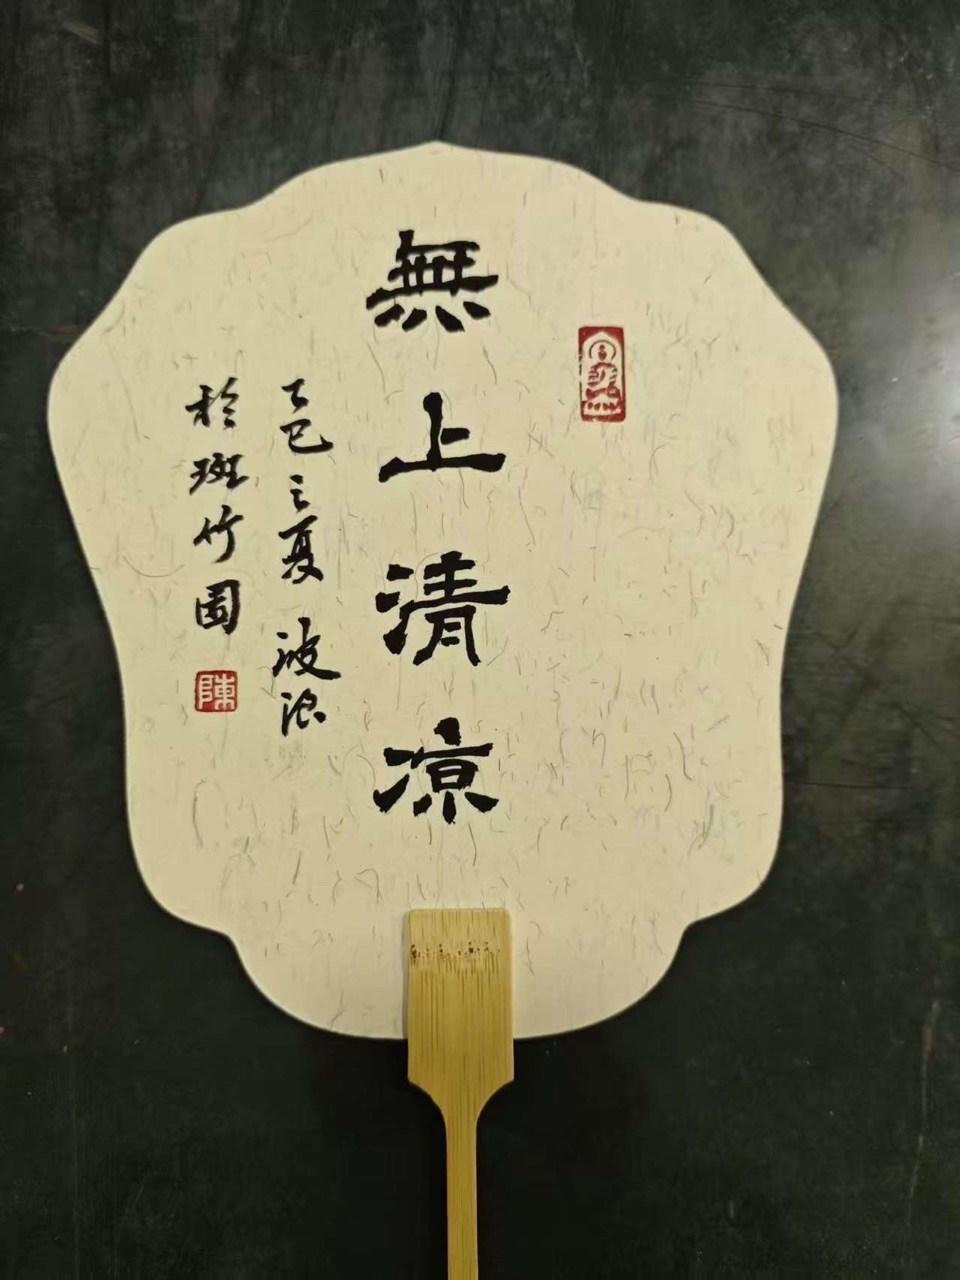 無上清凉
乙巳之夏 波浪
於斑竹園
陳